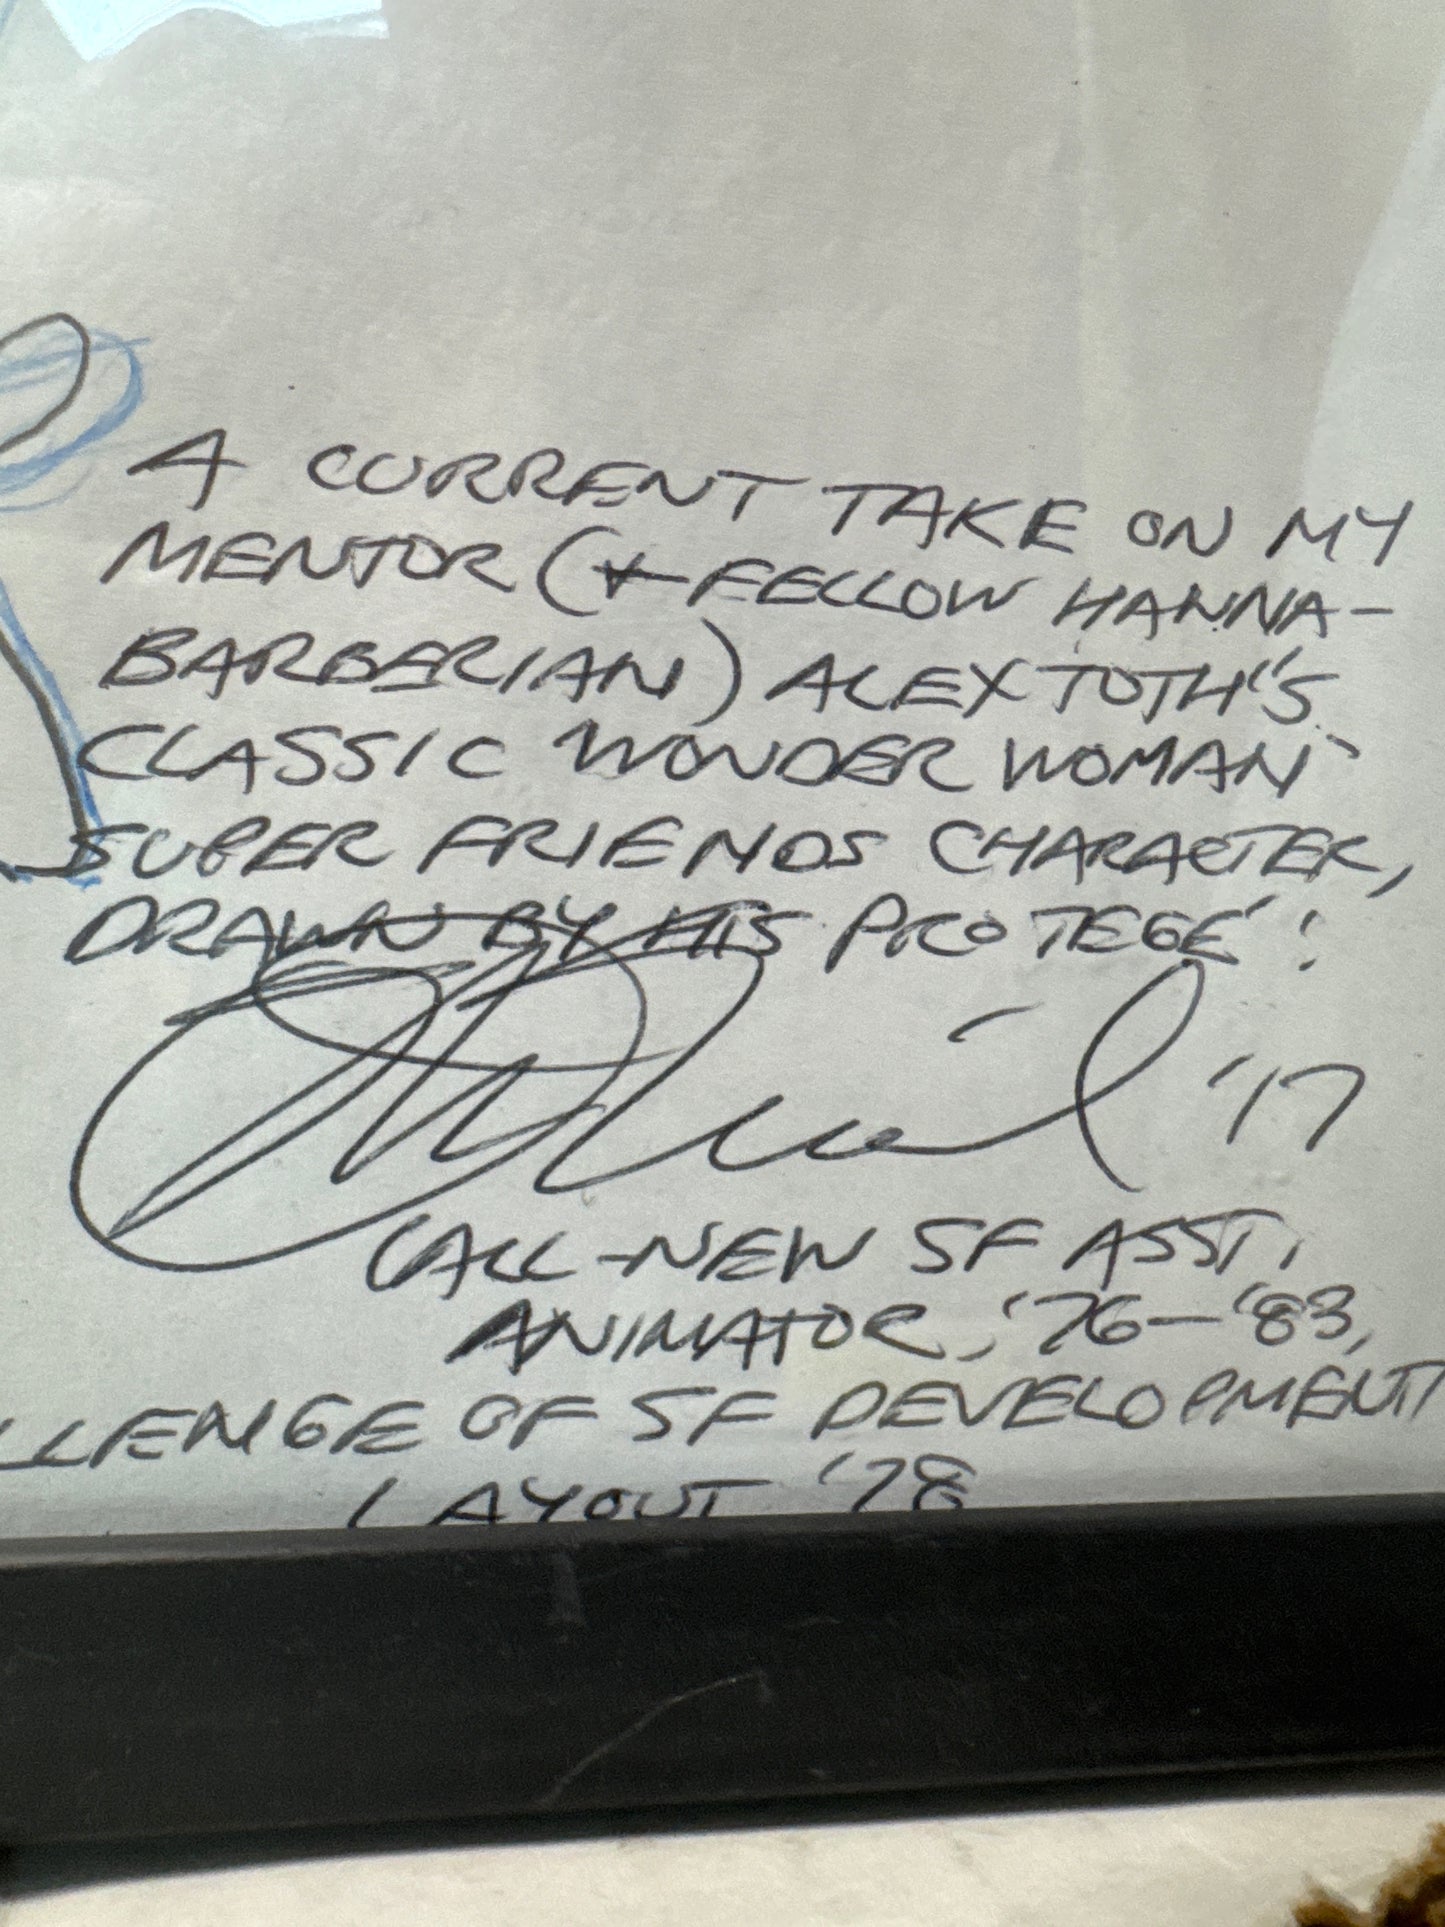 A CURRENT TAKE ON MY
MENTOR (+ FELLOW HANNA-
BARBERIAN) ALEX TOTH'S
CLASSIC WONDER WOMAN
SUPER FRIENDS CHARACTER,
DRAWN BY HIS PROTEGÉ:
'17
(ALL-NEW SF ASST.
ANIMATOR, '76-'83,
LLENGE OF SF DEVELOPMENT/
LAYOUT '78